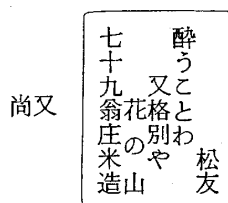 松友
酔うことわ
又格別や
花の山
七十九翁庄米造
尚又